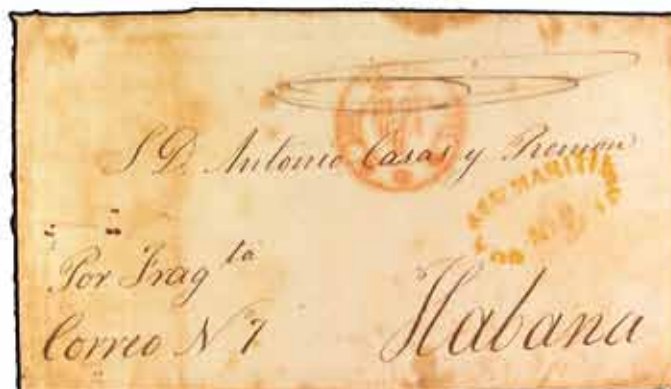 S D. Antonio Casas y Remon
Por Frag ta
Correo N 7
Habana